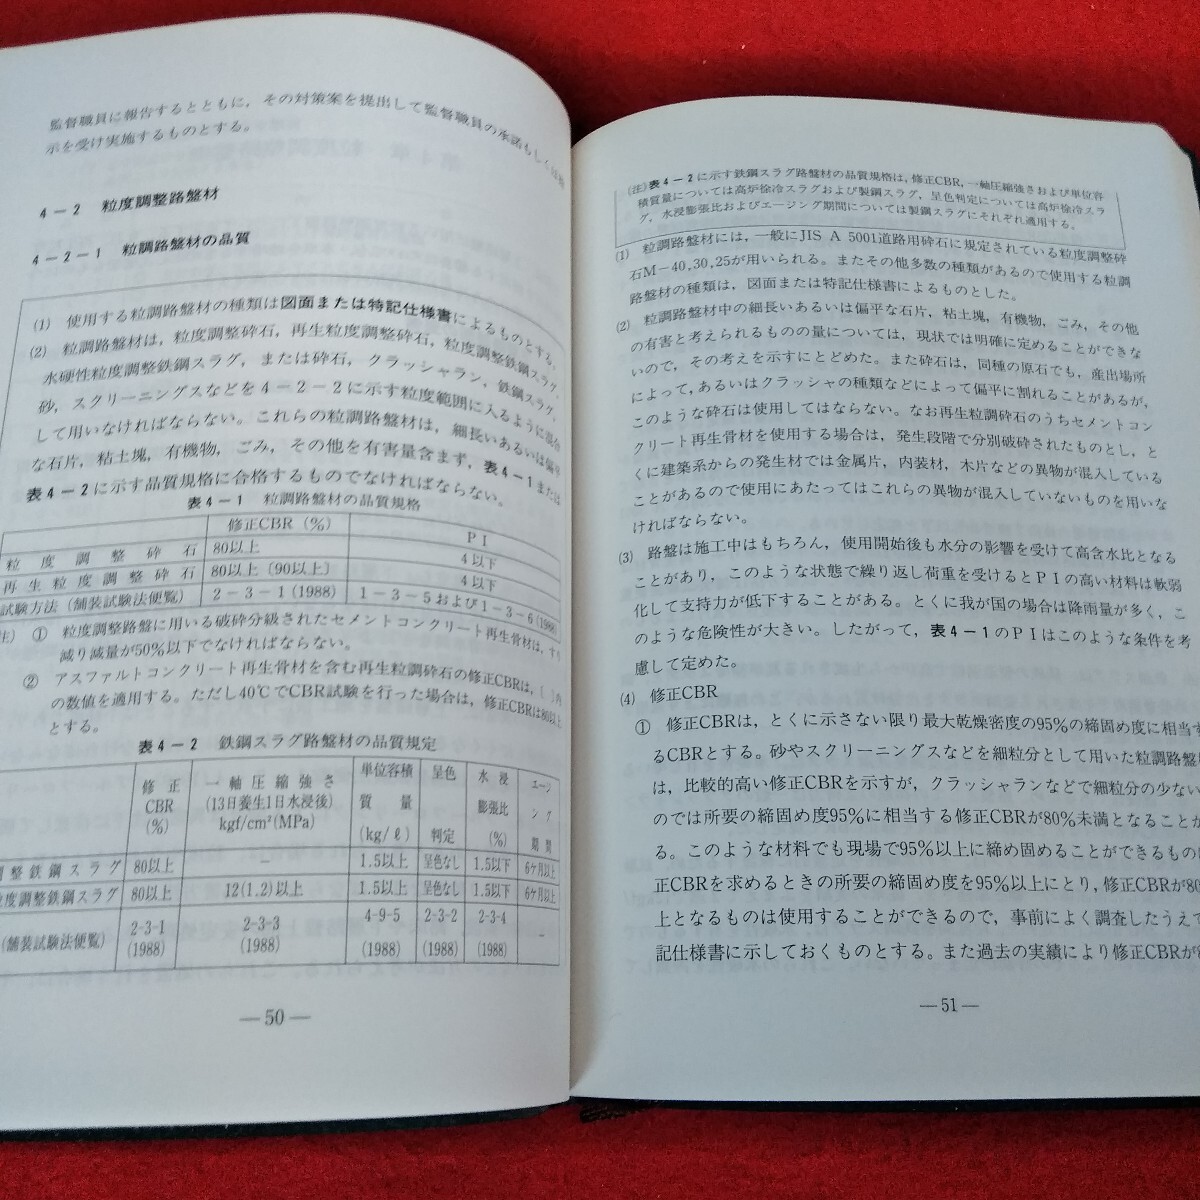 監督職員に報告するとともに，その対策案を提出して監督職員の承諾もしくは指
示を受け実施するものとする。
4－2　粒度調整路盤材
4－2－1　粒調路盤材の品質
(1)　使用する粒調路盤材の種類は図面または特記仕様書によるものとする。
(2)　粒調路盤材は，粒度調整砕石，再生粒度調整砕石，粒度調整鉄鋼スラグ，
水硬性粒度調整鉄鋼スラグ，または砕石，クラッシャラン，鉄鋼スラグ，
砂，スクリーニングスなどを4－2－2に示す粒度範囲に入るように混合
して用いなければならない。これらの粒調路盤材は，細長いあるいは偏平
な石片，粘土塊，有機物，ごみ，その他を有害量含まず，表4－1または
表4－2に示す品質規格に合格するものでなければならない。
表4－1　粒調路盤材の品質規格
修正CBR（%）　PI
粒度調整砕石　80以上　4以下
再生粒度調整砕石　80以上〔90以上〕　4以下
試験方法（舗装試験法便覧）　2－3－1（1988）　1－3－5および1－3－6（1988）
注）①　粒度調整路盤に用いる破砕分級されたセメントコンクリート再生骨材は，すり
減り減量が50%以下でなければならない。
②　アスファルトコンクリート再生骨材を含む再生粒調砕石の修正CBRは，〔　〕内
の数値を適用する。ただし40℃でCBR試験を行った場合は，修正CBRは80以上
とする。
表4－2　鉄鋼スラグ路盤材の品質規定
修正CBR(%)　一軸圧縮強さ(13日養生1日水浸後)kgf/cm²(MPa)　単位容積質量(kg/ℓ)　呈色判定　水浸膨張比(%)　エージング期間
調整鉄鋼スラグ　80以上　1.5以上　呈色なし　1.5以下　6ケ月以上
粒度調整鉄鋼スラグ　80以上　12(1.2)以上　1.5以上　呈色なし　1.5以下　6ケ月以上
(舗装試験法便覧)　2-3-1(1988)　2-3-3(1988)　4-9-5(1988)　2-3-2(1988)　2-3-4(1988)　－
―50―
(注)表4－2に示す鉄鋼スラグ路盤材の品質規格は，修正CBR，一軸圧縮強さおよび単位容
積質量については高炉徐冷スラグおよび製鋼スラグ，呈色判定については高炉徐冷スラ
グ，水浸膨張比およびエージング期間については製鋼スラグにそれぞれ適用する。
(1)　粒調路盤材には，一般にJIS A 5001道路用砕石に規定されている粒度調整砕
石M－40,30,25が用いられる。またその他多数の種類があるので使用する粒調
路盤材の種類は，図面または特記仕様書によるものとした。
(2)　粒調路盤材中の細長いあるいは偏平な石片，粘土塊，有機物，ごみ，その他
の有害と考えられるものの量については，現状では明確に定めることができな
いので，その考えを示すにとどめた。また砕石は，同種の原石でも，産出場所
によって，あるいはクラッシャの種類などによって偏平に割れることがあるが，
このような砕石は使用してはならない。なお再生粒調砕石のうちセメントコン
クリート再生骨材を使用する場合は，発生段階で分別破砕されたものとし，と
くに建築系からの発生材では金属片，内装材，木片などの異物が混入している
ことがあるので使用にあたってはこれらの異物が混入していないものを用いな
ければならない。
(3)　路盤は施工中はもちろん，使用開始後も水分の影響を受けて高含水比となる
ことがあり，このような状態で繰り返し荷重を受けるとPIの高い材料は軟弱
化して支持力が低下することがある。とくに我が国の場合は降雨量が多く，こ
のような危険性が大きい。したがって，表4－1のPIはこのような条件を考
慮して定めた。
(4)　修正CBR
①　修正CBRは，とくに示さない限り最大乾燥密度の95%の締固め度に相当す
るCBRとする。砂やスクリーニングスなどを細粒分として用いた粒調路盤材
は，比較的高い修正CBRを示すが，クラッシャランなどで細粒分の少ない
のでは所要の締固め度95%に相当する修正CBRが80%未満となることが
る。このような材料でも現場で95%以上に締め固めることができるものは
正CBRを求めるときの所要の締固め度を95%以上にとり，修正CBRが80
上となるものは使用することができるので，事前によく調査したうえで
記仕様書に示しておくものとする。また過去の実績により修正CBRが8
―51―